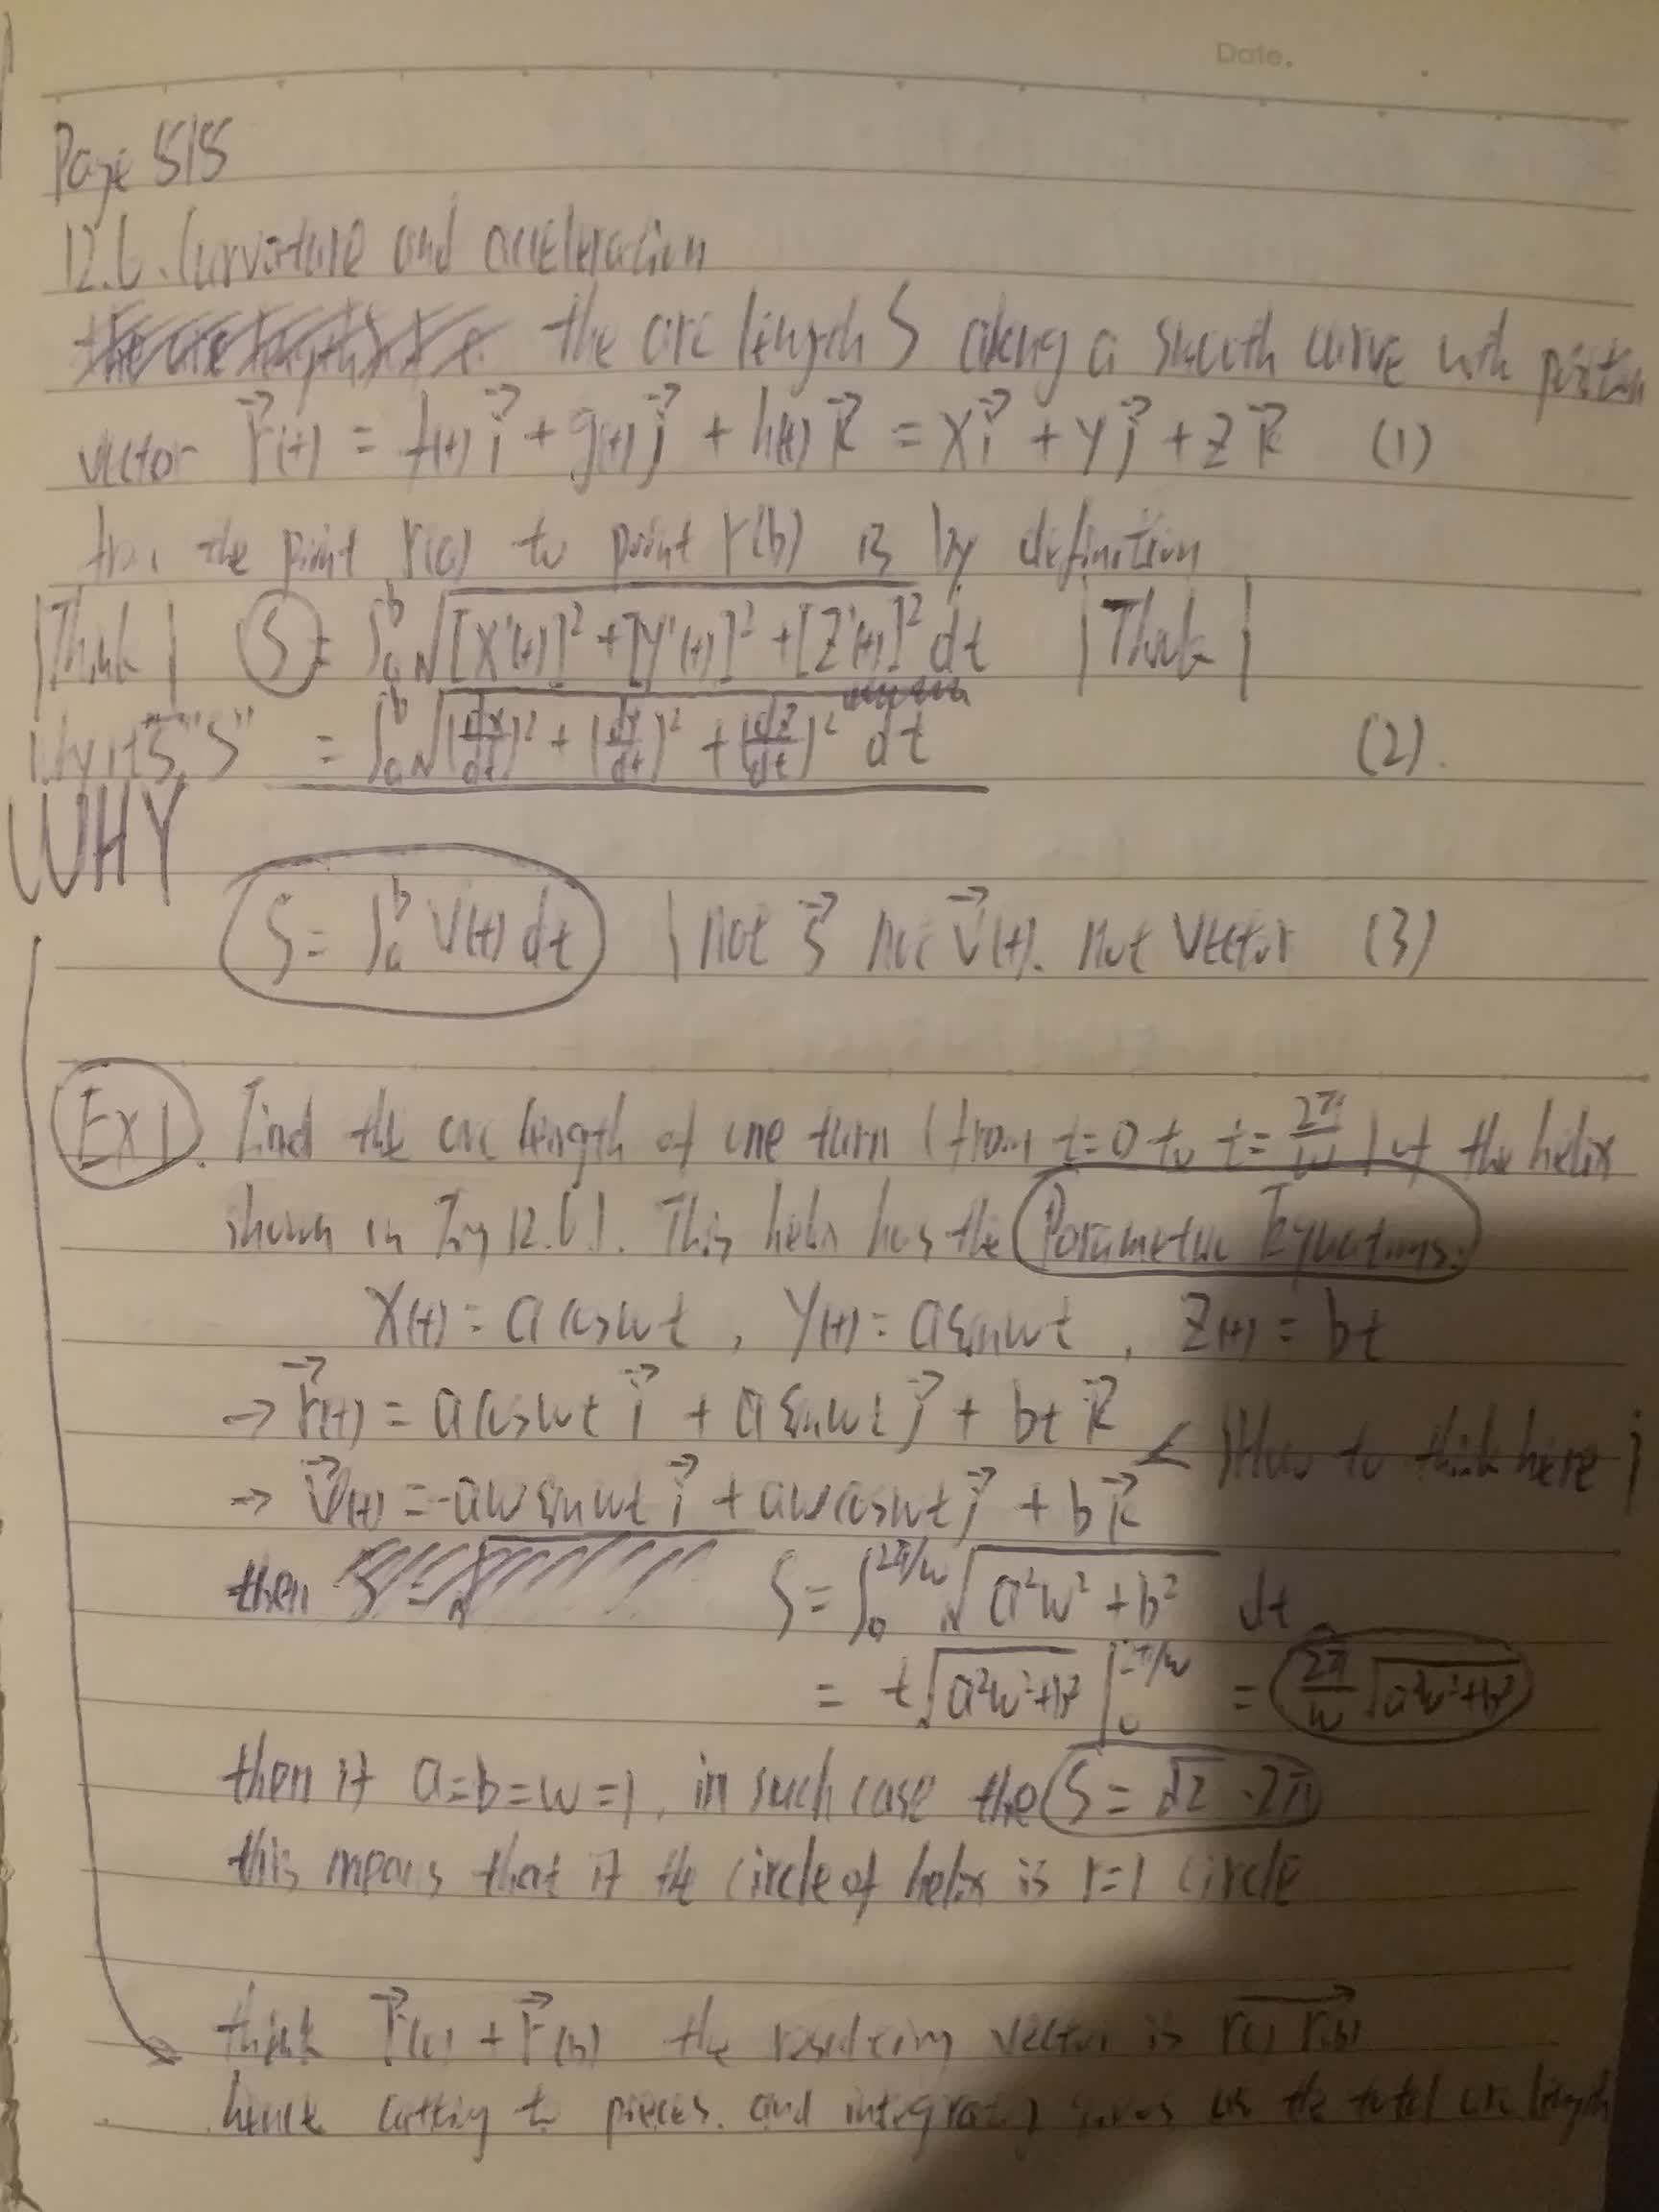 Date.
Page 515
12.6. Curvature and acceleration
the arc length S along a smooth curve with position
vector r⃗(t) = f(t) i⃗ + g(t) j⃗ + h(t) k⃗ = x i⃗ + y j⃗ + z k⃗ (1)
from the point r(a) to point r(b) is by definition
|Think| S = ∫ₐᵇ √([x'(t)]² + [y'(t)]² + [z'(t)]²) dt |Think|
Why it's "S" = ∫ₐᵇ √((dx/dt)² + (dy/dt)² + (dz/dt)²) dt (2).
WHY
S = ∫ₐᵇ v(t) dt | not s⃗ not v⃗(t). not vector (3)
Ex 1. Find the arc length of one turn (from t=0 to t=2π/w) of the helix
shown in Fig 12.6.1. This helix has the Parametric Equations.
x(t) = a cos wt, y(t) = a sin wt, z(t) = bt
→ r⃗(t) = a cos wt i⃗ + a sin wt j⃗ + bt k⃗
< |How to think here|
→ v⃗(t) = -aw sin wt i⃗ + aw cos wt j⃗ + b k⃗
then S = ∫₀^(2π/w) √(a²w² + b²) dt
= t√(a²w²+b²) |₀^(2π/w) = 2π/w √(a²w²+b²)
then if a=b=w=1, in such case the S = √2 · 2π
this means that if the circle of helix is r=1 circle
think r⃗(a) + r⃗(b) the resulting vector is r(a) r(b)
hence cutting to pieces. and integrating gives us the total arc length